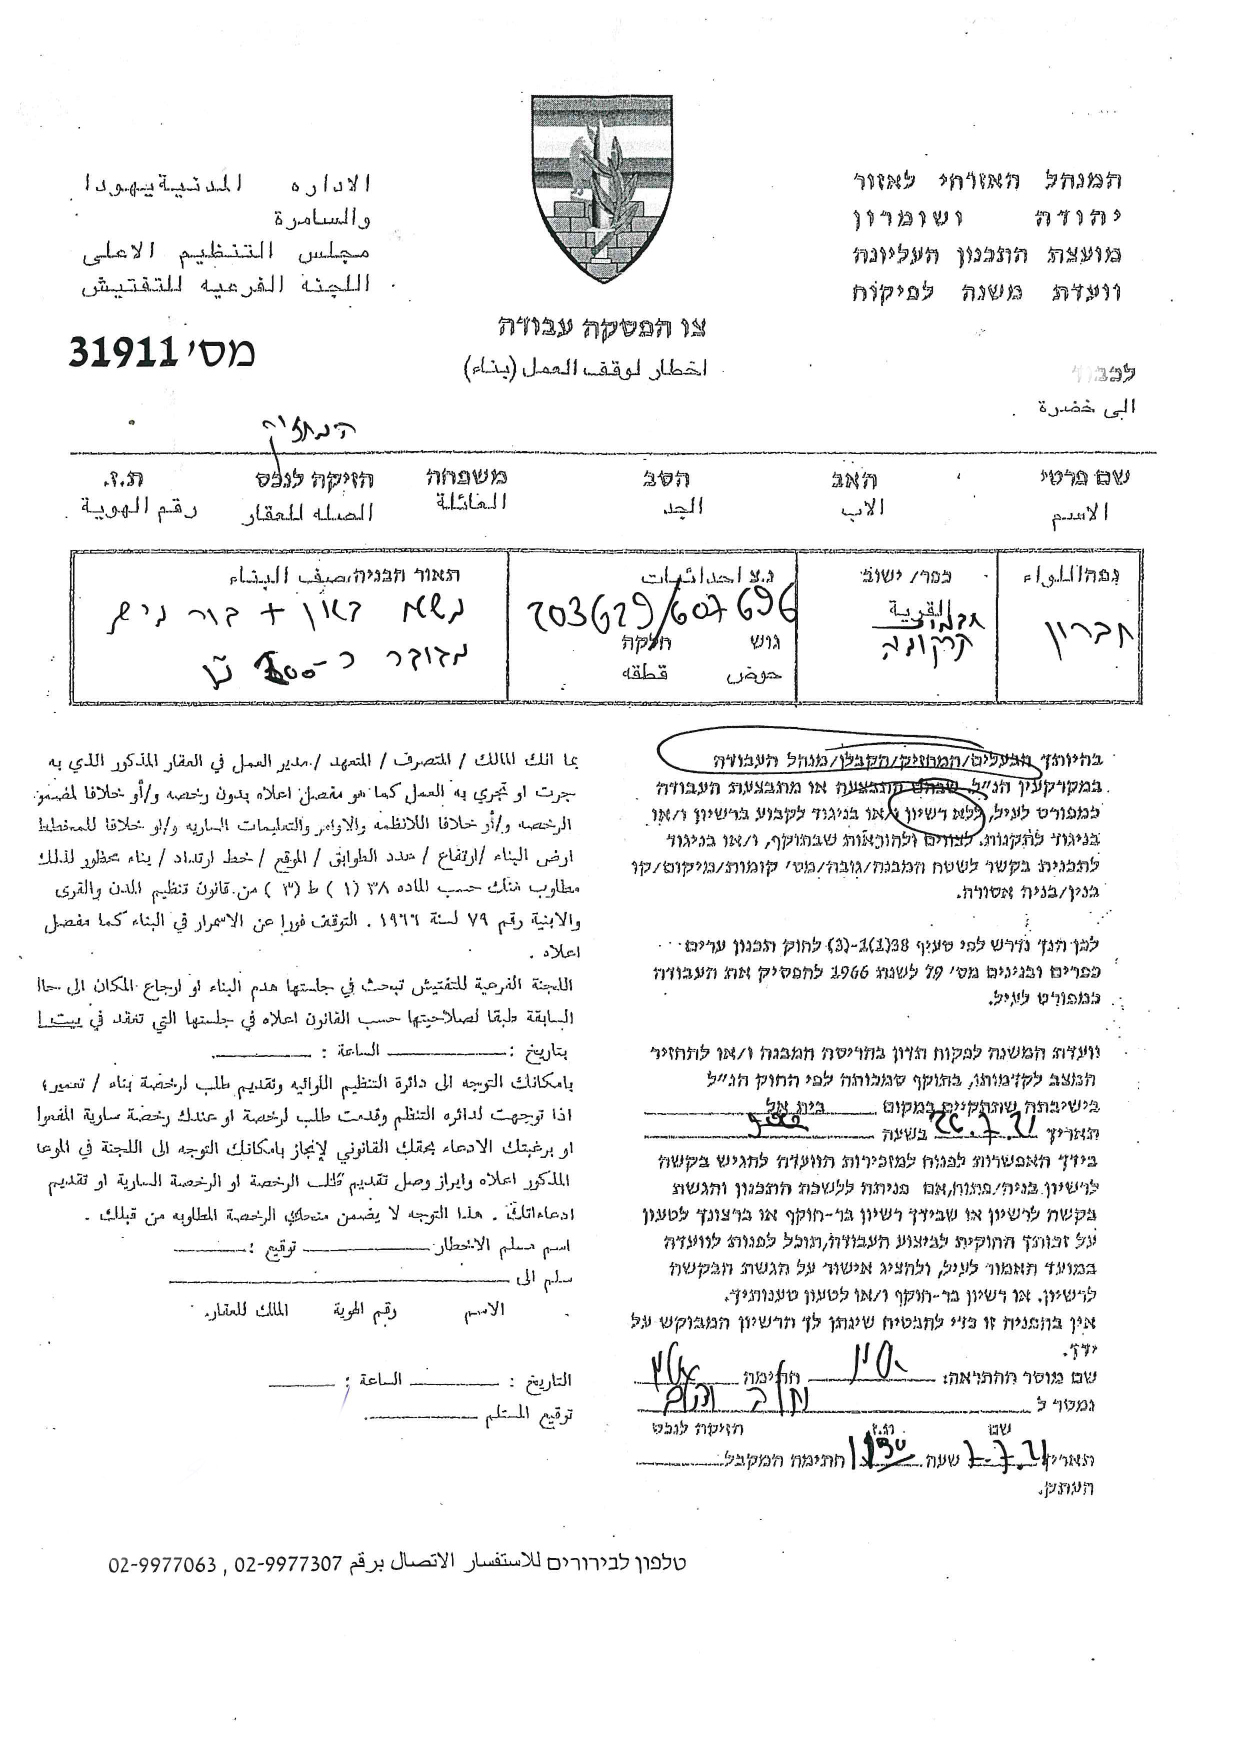 המנהל האזרחי לאזור
יהודה ושומרון
מועצת התכנון העליונה
וועדת משנה לפיקוח
الاداره المدنية يهودا
والسامرة
مجلس التنظيم الاعلى
اللجنة الفرعيه للتفتيش
צו הפסקה עבודה
اخطار لوقف العمل (بناء)
מס׳ 31911
לכבוד
الى حضرة
המחזיק
שם פרטי האב הסב משפחה הזיקה לנכס ת.ז.
الاسم الاب الجد العائلة الصله للعقار رقم الهوية
נפה/اللواء כפר/ ישוב نـצ احداثيات תאור הבניה/صيف البناء
חברון
القرية
תרקומיה
203629/607696
גוש חלקה
حوض قطقه
משא באון + בור מים
מדובר כ-
בהיותך הבעלים/המחזיק/הקבלן/מנהל העבודה
במקרקעין הנ״ל, שבהם התבצעה או מתבצעת העבודה
כמפורט לעיל, ללא רשיון ו/או בניגוד לקבוע ברשיון ו/או
בניגוד לתקנות, לצווים ולהוראות שבתוקף, ו/או בניגוד
לתכנית בקשר לשטח המבנה/גובה/מס׳ קומות/מיקום/קו
בנין/בניה אסורה.
לכן הנך נדרש לפי סעיף 38(1)ו-(3) לחוק תכנון ערים
כפרים ובנינים מס׳ 79 לשנת 1966 להפסיק את העבודה
כמפורט לעיל.
וועדת המשנה לפקוח תדון בהריסת המבנה ו/או להחזיר
המצב לקדמותו, בתוקף סמכותה לפי החוק הנ״ל
בישיבתה שתתקיים במקום בית אל
תאריך 26.7.21 בשעה
בידך האפשרות לפנות למזכירות הוועדה להגיש בקשה
לרשיון בניה/פתוח,אם פניתה ללשכת התכנון והגשת
בקשה לרשיון או שבידך רשיון בר-תוקף או ברצונך לטעון
על זכותך החוקית לביצוע העבודה,תוכל לפנות לוועדה
במועד האמור לעיל, ולהציג אישור על הגשת הבקשה
לרשיון. או רשיון בר-תוקף ו/או לטעון טענותיך.
אין בהפניה זו כדי להבטיח שינתן לך הרשיון המבוקש על
ידך.
שם מוסר ההתראה: חתימה
נמסר ל
שם ת.ז הזיקה לנכס
תאריך 7.7.21 שעה 1130 חתימת המקבל
העתק.
بما انك المالك / المتصرف / المتعهد / مدير العمل في العقار المذكور الذي به
جرت او تجري به العمل كما هو مفصل اعلاه بدون رخصه و/أو خلافا لمضمو
الرخصه و/أو خلافا اللانظمه والاوامر والتعليمات الساريه و/او خلافا للمخطط
ارض البناء /ارتفاع / عدد الطوابق / الموقع / خط ارتداد / بناء محظور لذلك
مطلوب منك حسب الماده ٣٨ (١) ط (٣) من قانون تنظيم المدن والقرى
والابنية رقم ٧٩ لسنة ١٩٦٦ . التوقف فورا عن الاسمرار في البناء كما مفصل
اعلاه .
اللجنة الفرعية للتفتيش تبحث في جلستها هدم البناء او ارجاع المكان الى حالا
السابقة طبقا لصلاحيتها حسب القانون اعلاه في جلستها التي تعقد في بيت ا
بتاريخ : الساعة :
بامكانك التوجه الى دائرة التنظيم اللوائيه وتقديم طلب لرخصة بناء / تعمير؛
اذا توجهت لدائره التنظم وقدمت طلب لرخصة او عندك رخصة سارية المفعوا
او برغبتك الادعاء بحقك القانوني لإنجاز بامكانك التوجه الى اللجنة في الموعا
المذكور اعلاه وابراز وصل تقديم طلب الرخصة او الرخصة السارية او تقديم
ادعاءاتك . هذا التوجه لا يضمن منحك الرخصة المطلوبه من قبلك .
اسم مسلم الاخطار توقيع :
سلم الى
الاسم رقم الهوية المالك للعقار.
التاريخ : الساعة :
توقيع المستلم
טלפון לבירורים للاستفسار الاتصال برقم 02-9977307 , 02-9977063